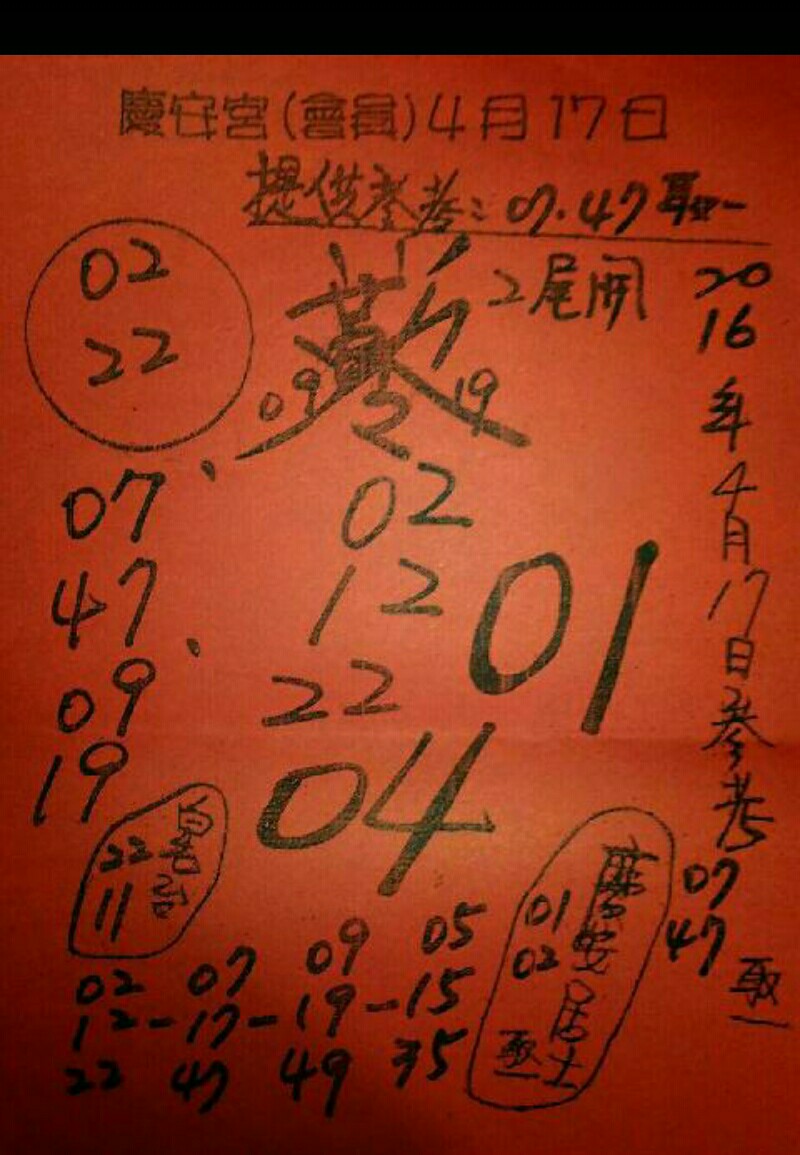 慶安宮(會員)4月17日
提供參考:07.47取一
2尾開
02
22
09
2
19
07、
47
09
19
02
12
22
01
04
2016年4月17日參考
07
47
取一
22
11
慶安居士
01
02
取一
02 07 09 05
12-17-19-15
22 47 49 35